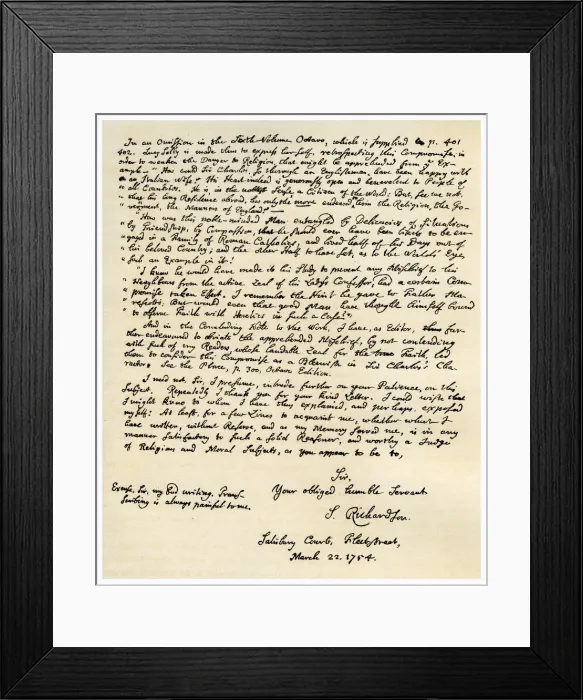 In an Omission in the Sixth Volume Octavo, which is supplied p. 401
402. Lucy Selby is made thus to express herself, retrospecting this Compromise, in
order to weaken the Danger to Religion, that might be apprehended from ye Ex-
ample — "How could Sir Charles, so thorough an Englishman, have been happy with
" an Italian Wife? His Heart indeed is generously open and benevolent to People of
" all Countries. He is, in the noblest Sense, a Citizen of the World: But, see we not,
" that his long Residence abroad, has only the more endear'd him to the Religion, the Go-
" vernment, the Manners of England? —
" How was this noble-minded Man entangled by Delicacies of Situation,
" by Friendship, by Compassion, that he should ever have been likely to be en-
" gaged in a Family of Roman Catholics, and lived half of his Days out of
" his beloved Country; and the other Half to have set, as to the World's Eye,
" such an Example in it!
" I know he would have made it his Study to prevent any Mischief to his
" Neighbours from the active Zeal of his Lady's Confessor, had a certain Com-
" promise taken Effect. I remember the Hint he gave to Father Ma-
" rescotti: But would even that good Man have thought himself bound
" to observe Faith with Heretics in such a Case?"
And in the Concluding Note to the Work, I have, as Editor, fur-
ther endeavoured to obviate the apprehended Mischief, by not contending
with such of my Readers whose laudable Zeal for the true Faith, led
them to consider this Compromise as a Blemish in Sir Charles's Cha-
racter. See the Place, p. 300, Octavo Edition.
I need not, Sir, I presume, intrude further on your Patience, on this
Subject. Repeatedly I thank you for your kind Letter. I could wish that
I might know to whom I have thus explained, and perhaps, exposed
myself: At least, for a few Lines to acquaint me, whether what I
have written, without Reserve, and as my Memory served me, is in any
manner Satisfactory to such a solid Reasoner, and worthy a Judge
of Religion and Moral Subjects, as you appear to be to,
Sir,
Your obliged humble Servant
S. Richardson.
Excuse, Sir, my bad writing. Tran-
scribing is always painful to me.
Salisbury Court, Fleetstreet,
March 22. 1754.